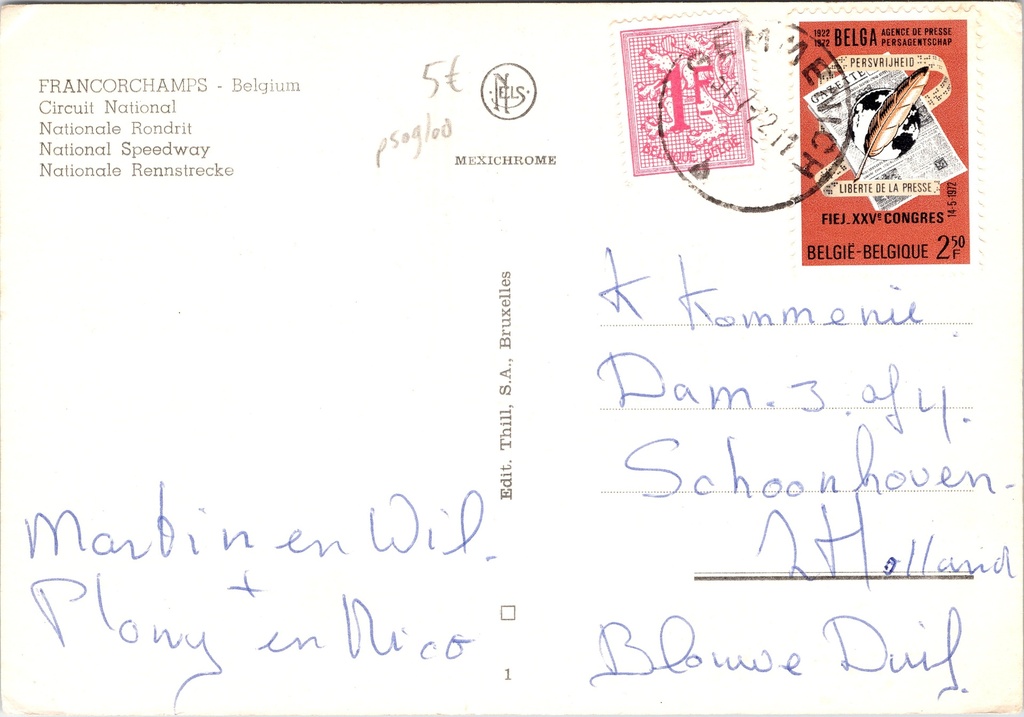 FRANCORCHAMPS - Belgium
Circuit National
Nationale Rondrit
National Speedway
Nationale Rennstrecke
5€
ps09/00
NELS
MEXICHROME
1F
BELGIQUE-BELGIE
1922 1972 BELGA AGENCE DE PRESSE PERSAGENTSCHAP
PERSVRIJHEID
GAZETTE
LIBERTE DE LA PRESSE
14-5-1972
FIEJ_XXVᵉ CONGRES
BELGIË-BELGIQUE 2⁵⁰ F
Edit. Thill, S.A., Bruxelles
K Kommenie
Dam. 3. of 4.
Schoonhoven-
Z Holland
Blauwe Duif.
Martin en Wil.
+
Plony en Nico
1